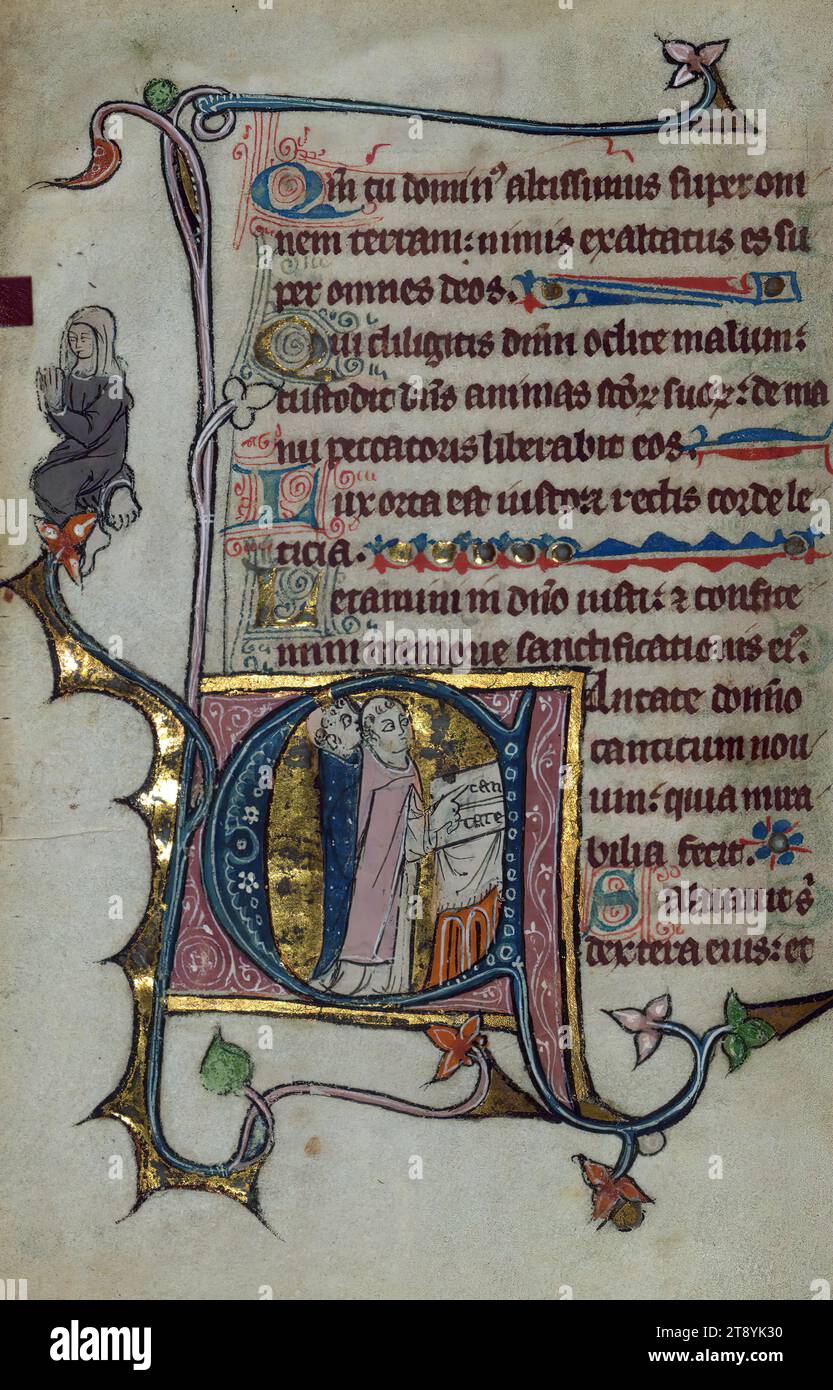 Qm̄ tu domin᾽ altissimus super om
nem terram: nimis exaltatus es su
per omnes deos.
Qui diligitis dnm̄ odite malum:
custodit dn̄s animas sc̄oꝝ suoꝝ: de ma
nu peccatoris liberabit eos.
Lux orta est iusto: ⁊ rectis corde le
ticia.
Letamini in dn̄o iusti: ⁊ confite
mini memorie sanctificationis ei᾽.
Cantate domino
canticum nou
um: quia mira
bilia fecit.
can
tate
Saluauit s̄
dextera eius: et
alamy
Image ID: 2T8YK30
www.alamy.com